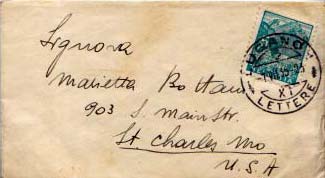 Signora
Marietta Bottani
903 S. Main Str.
St. Charles Mo
U.S.A
LUGANO 1
LETTERE